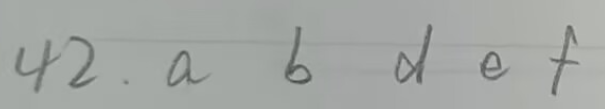 42. a b d e f